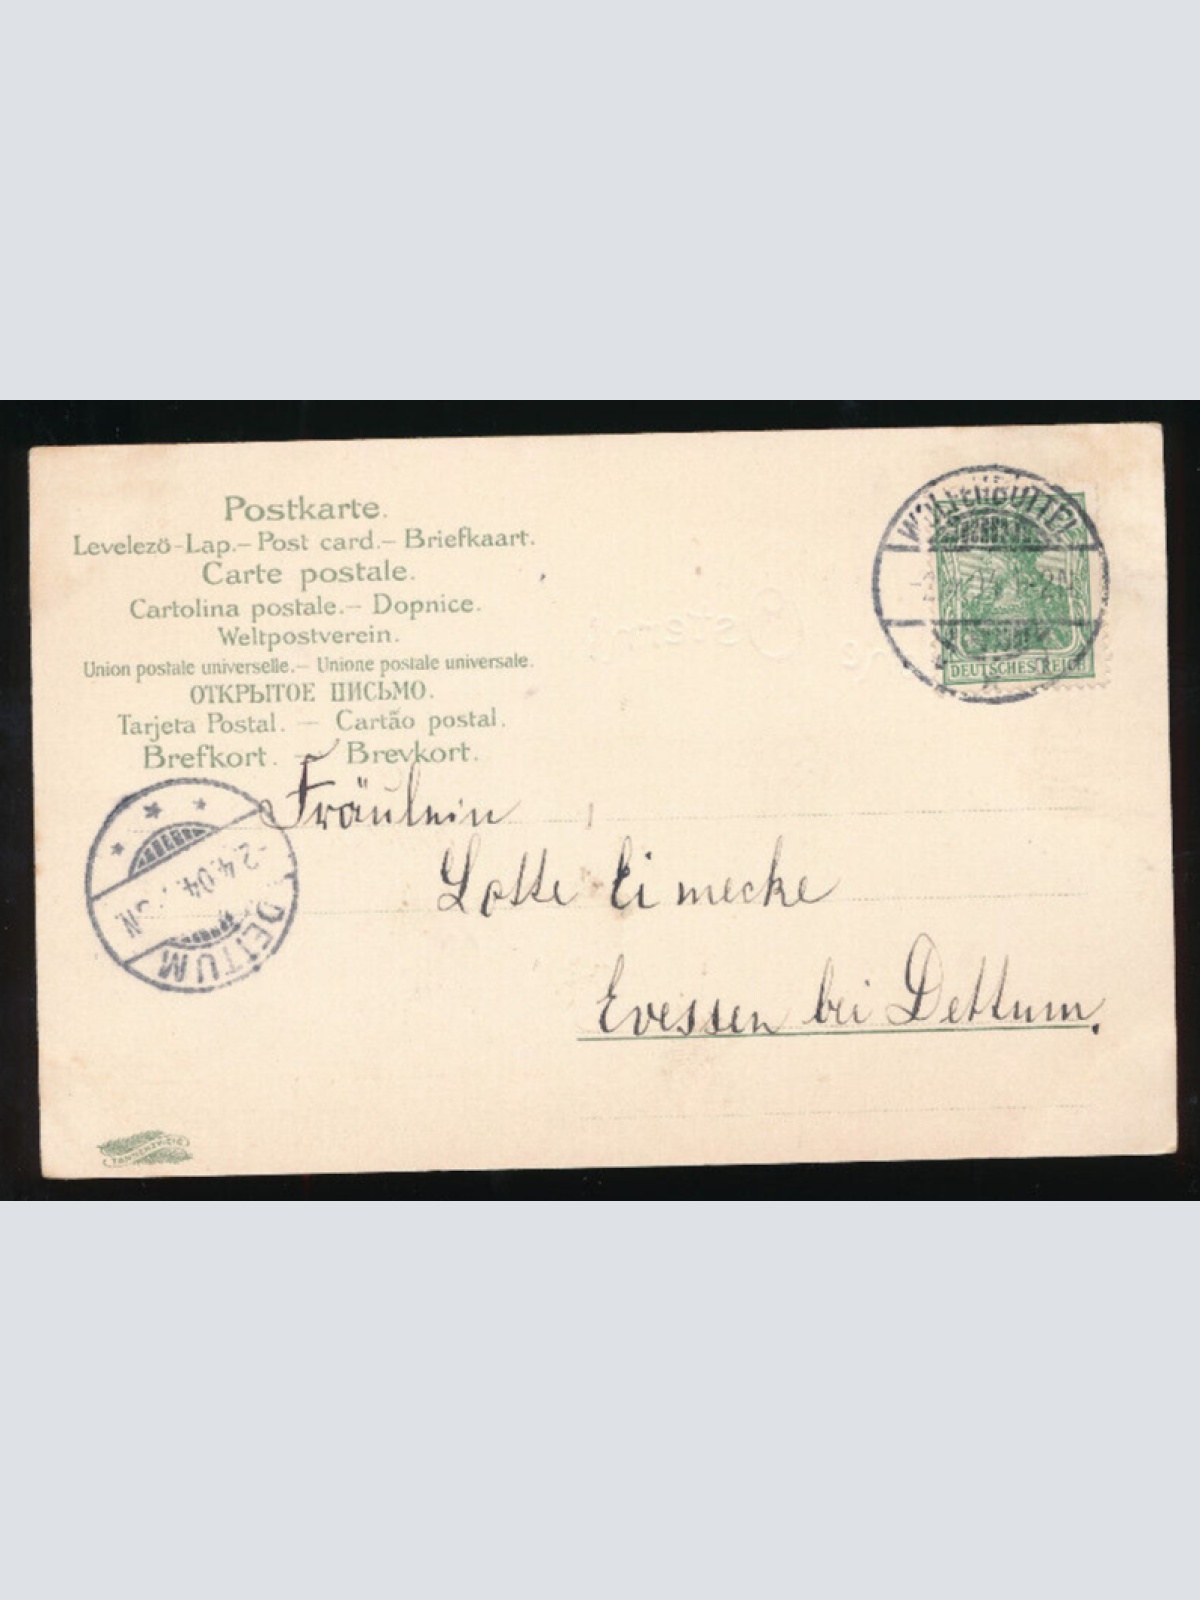 Postkarte.
Levelező-Lap.– Post card.– Briefkaart.
Carte postale.
Cartolina postale.– Dopnice.
Weltpostverein.
Union postale universelle.– Unione postale universale.
ОТКРЫТОЕ ПИСЬМО.
Tarjeta Postal. — Cartão postal.
Brefkort. — Brevkort.
WOLFENBÜTTEL
DEUTSCHES REICH
Fräulein
Lotte Eimecke
Evessen bei Dettum.
2.4.04.
DETTUM
TANNENZWEIG